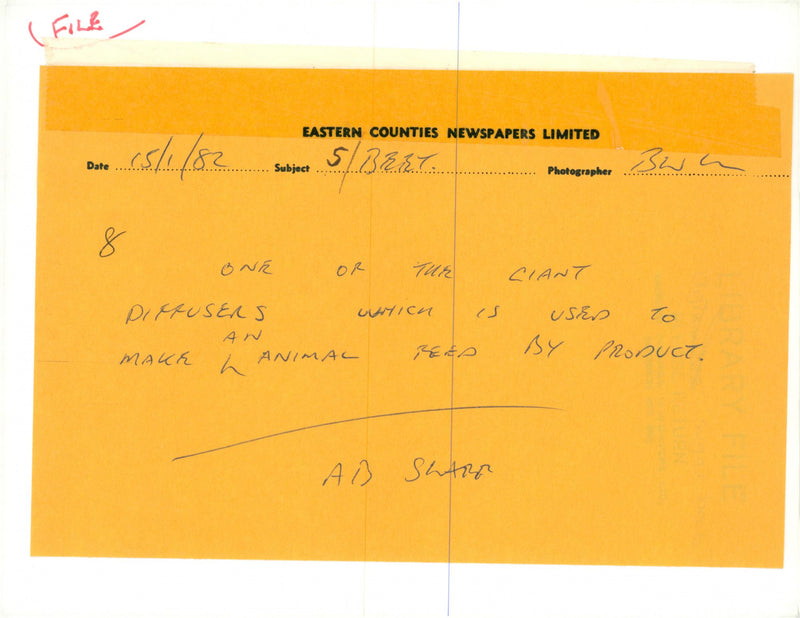 FILE
EASTERN COUNTIES NEWSPAPERS LIMITED
Date 15/1/82 Subject S/BEET. Photographer
8
ONE OF THE GIANT
DIFFUSERS WHICH IS USED TO
AN
MAKE ANIMAL FEED BY PRODUCT.
AB
LIBRARY FILE